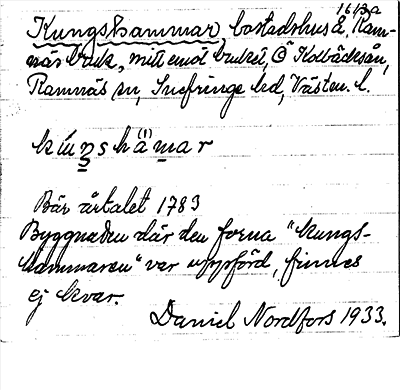 1613a
Kungshammar, bostadshus &, Ram-
näs bruk, mitt emot bruket, Ö Kolbäcksån,
Ramnäs sn, Snefringe hd, Västm. l.
kúŋshā̀(i)mar
Bär årtalet 1783
Byggnaden där den forna "kungs-
hammaren" var uppförd, finnes
ej kvar.
Daniel Nordfors 1933.